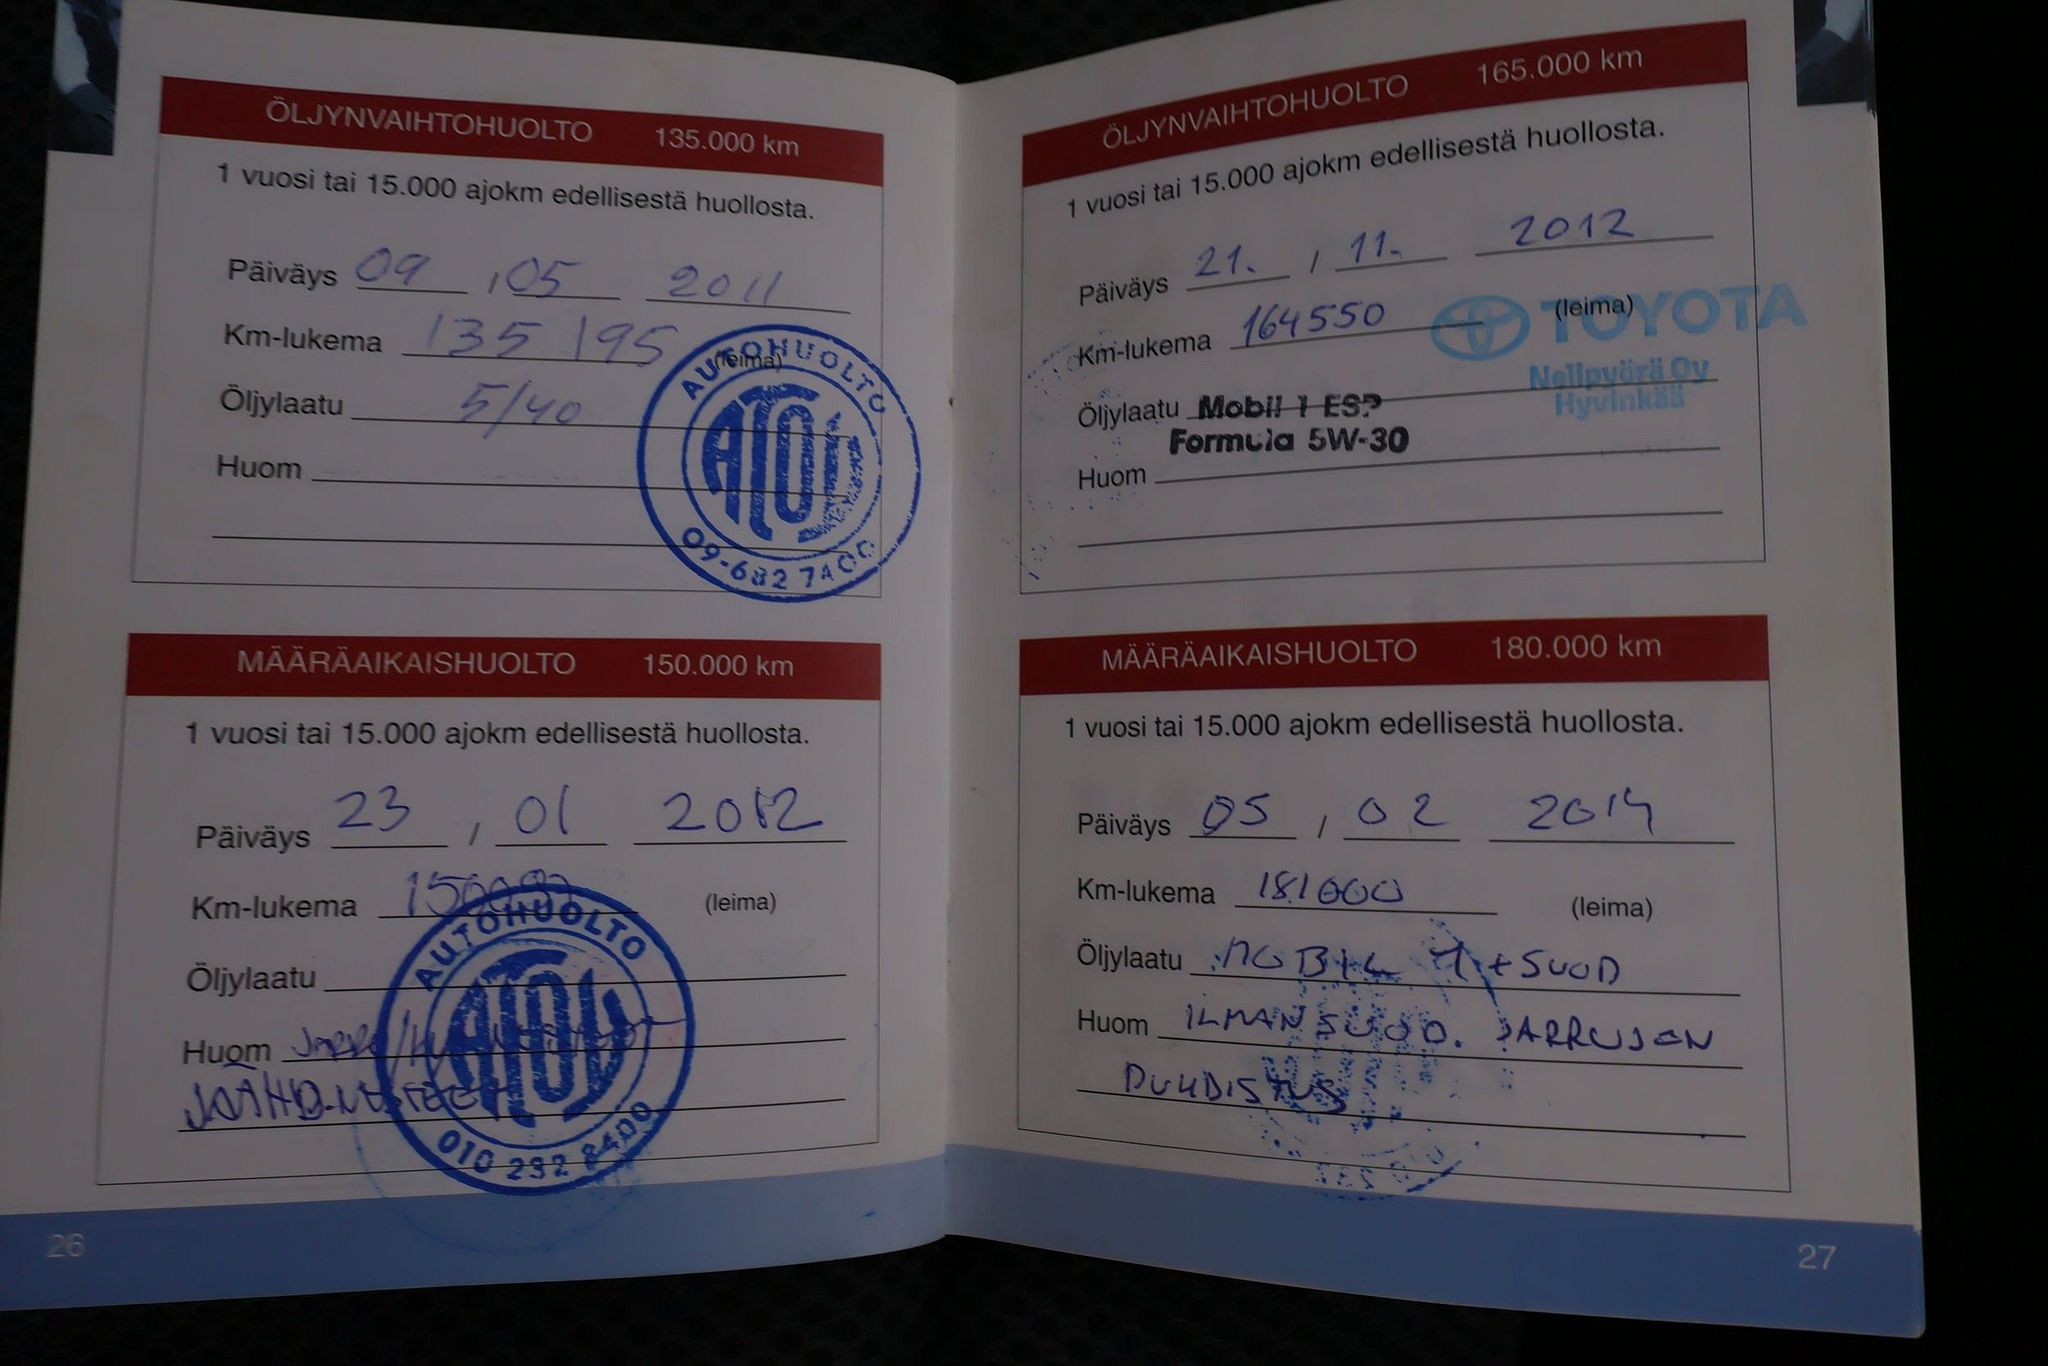 ÖLJYNVAIHTOHUOLTO 135.000 km
1 vuosi tai 15.000 ajokm edellisestä huollosta.
Päiväys 09 / 05 2011
Km-lukema 135 195
(leima)
Öljylaatu 5/40
Huom
AUTOHUOLTO
ATOY
09-682
MÄÄRÄAIKAISHUOLTO 150.000 km
1 vuosi tai 15.000 ajokm edellisestä huollosta.
Päiväys 23 / 01 2012
Km-lukema
(leima)
Öljylaatu
Huom
AUTOHUOLTO
ATOY
010 232 8400
26
ÖLJYNVAIHTOHUOLTO 165.000 km
1 vuosi tai 15.000 ajokm edellisestä huollosta.
Päiväys 21. / 11. 2012
Km-lukema 164550 (leima)
TOYOTA
Nelipyörä Oy
Hyvinkää
Öljylaatu Mobil 1 ESP
Formula 5W-30
Huom
MÄÄRÄAIKAISHUOLTO 180.000 km
1 vuosi tai 15.000 ajokm edellisestä huollosta.
Päiväys 05 / 02 2014
Km-lukema 181000 (leima)
Öljylaatu MOBIL 1 + SUOD
Huom ILMANSUOD. JARRUJEN
PUHDISTUS
27